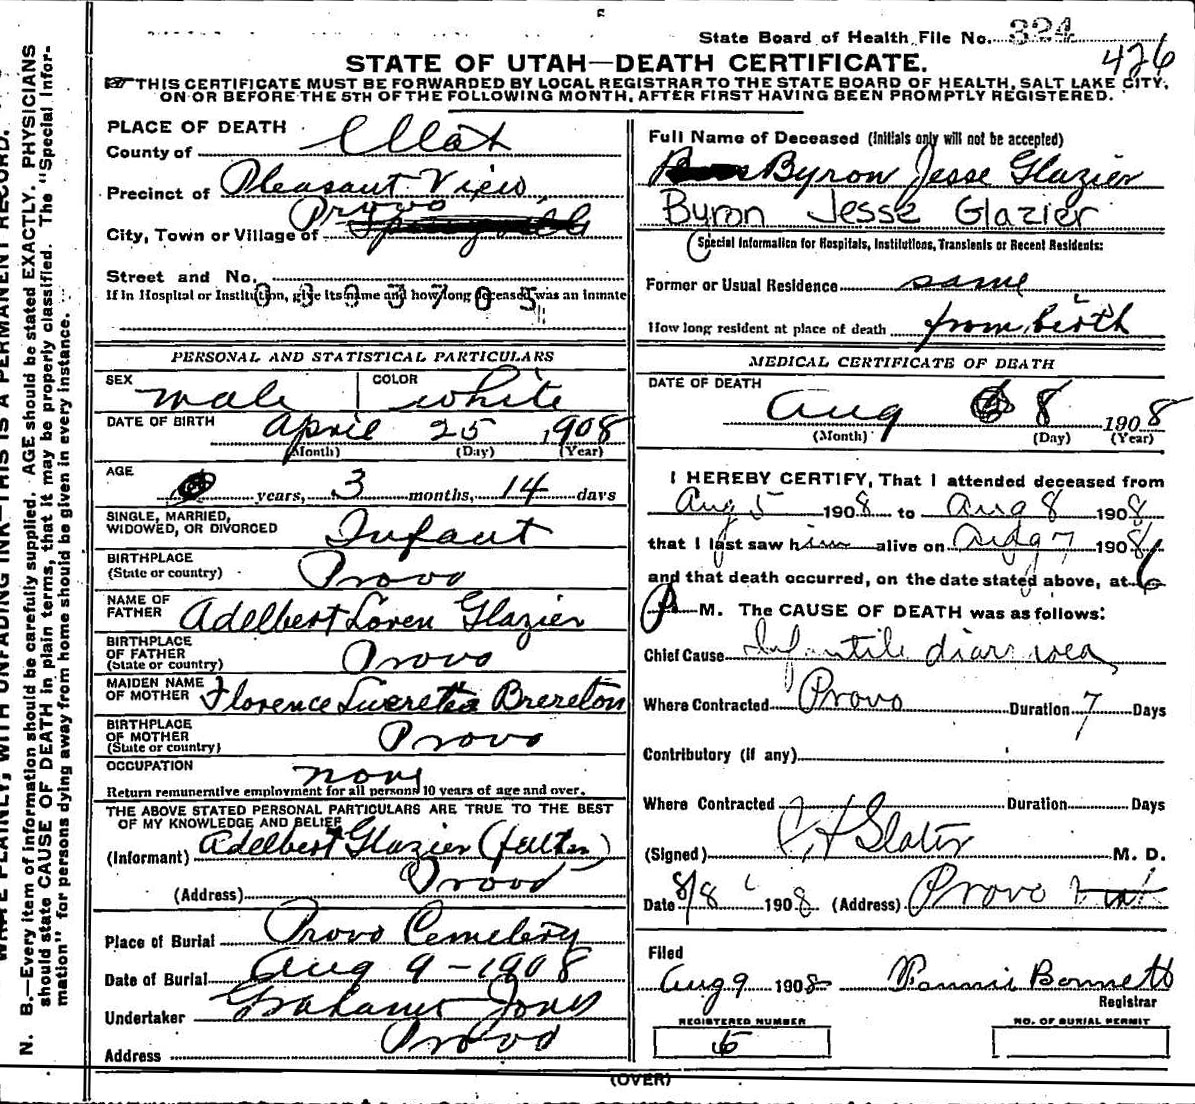 State Board of Health File No. 324
426
STATE OF UTAH—DEATH CERTIFICATE.
THIS CERTIFICATE MUST BE FORWARDED BY LOCAL REGISTRAR TO THE STATE BOARD OF HEALTH, SALT LAKE CITY,
ON OR BEFORE THE 5TH OF THE FOLLOWING MONTH, AFTER FIRST HAVING BEEN PROMPTLY REGISTERED.
PLACE OF DEATH
County of Utah
Precinct of Pleasant View
Provo
City, Town or Village of
Street and No.
If in Hospital or Institution, give its name and how long deceased was an inmate
Full Name of Deceased (Initials only will not be accepted)
Byron Jesse Glazier
Byron Jesse Glazier
Special Information for Hospitals, Institutions, Transients or Recent Residents:
Former or Usual Residence same
How long resident at place of death from birth
PERSONAL AND STATISTICAL PARTICULARS
SEX male COLOR white
DATE OF BIRTH April 25, 1908
(Month) (Day) (Year)
AGE years, 3 months, 14 days
SINGLE, MARRIED,
WIDOWED, OR DIVORCED Infant
BIRTHPLACE
(State or country) Provo
NAME OF
FATHER Adelbert Loren Glazier
BIRTHPLACE
OF FATHER
(State or country) Provo
MAIDEN NAME
OF MOTHER Florence Lucretia Brereton
BIRTHPLACE
OF MOTHER
(State or country) Provo
OCCUPATION none
Return remunerative employment for all persons 10 years of age and over.
THE ABOVE STATED PERSONAL PARTICULARS ARE TRUE TO THE BEST
OF MY KNOWLEDGE AND BELIEF
(Informant) Adelbert Glazier (father)
(Address) Provo
Place of Burial Provo Cemetery
Date of Burial Aug 9 - 1908
Undertaker Graham Jones
Address Provo
MEDICAL CERTIFICATE OF DEATH
DATE OF DEATH
Aug 8 1908
(Month) (Day) (Year)
I HEREBY CERTIFY, That I attended deceased from
Aug 5 1908 to Aug 8 1908
that I last saw him alive on Aug 7 1908
and that death occurred, on the date stated above, at 6
P M. The CAUSE OF DEATH was as follows:
Chief Cause Infantile diarrhoea
Where Contracted Provo Duration 7 Days
Contributory (if any)
Where Contracted Duration Days
(Signed) Slater M. D.
Date 8/8 1908 (Address) Provo Utah
Filed
Aug 9 1908 Bonnett
Registrar
REGISTERED NUMBER
NO. OF BURIAL PERMIT
(OVER)
N. B.—Every item of information should be carefully supplied. AGE should be stated EXACTLY. PHYSICIANS
should state CAUSE OF DEATH in plain terms, that it may be properly classified. The "Special Infor-
mation" for persons dying away from home should be given in every instance.